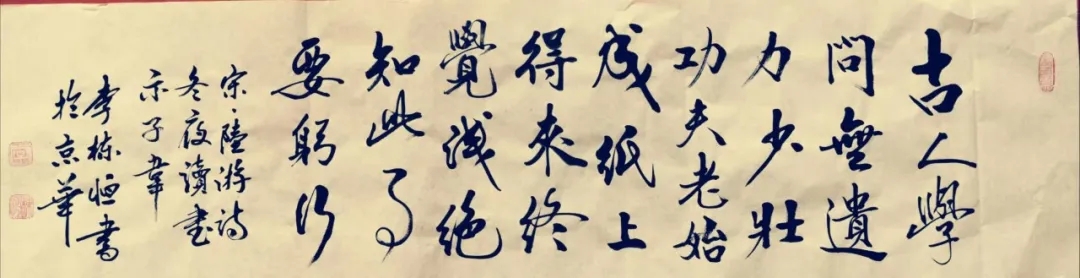 古人學
問無遺
力少壯
功夫老始
成紙上
得來終
覺淺絕
知此事
要躬行
宋·陸游詩
冬夜讀書
示子韋
李栋恒書
於京華